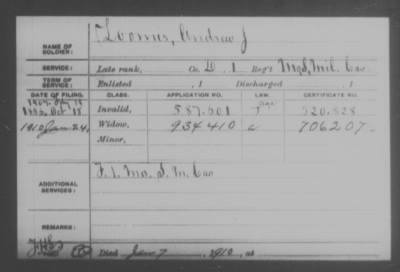 NAME OF SOLDIER: Loomis, Andrew J
SERVICE: Late rank, Co. D, 1 Reg't Mo. S. Mil. Cav
TERM OF SERVICE: Enlisted , 1 Discharged , 1
DATE OF FILING. CLASS. APPLICATION NO. LAW. CERTIFICATE NO.
Invalid, 587.501 520.828
1910 Jan 24, Widow, 934 410 706207
Minor,
ADDITIONAL SERVICES: F. 1. Mo. S. M. Cav
REMARKS:
Died 7, 1910, at